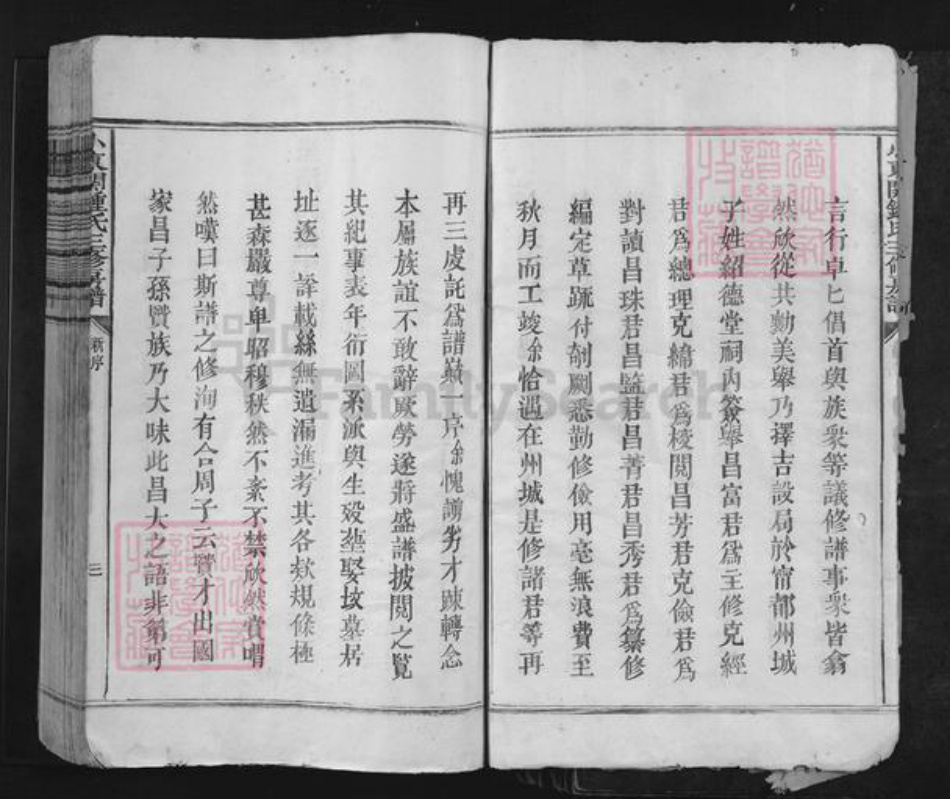 言行卓匕倡首與族衆等議修譜事衆皆翕
然欣從共勷美舉乃擇吉設局於甯都州城
子姓紹德堂祠內簽舉昌富君爲主修克經
君爲總理克緯君爲校閱昌芳君克儉君爲
對讀昌珠君昌監君昌菁君昌秀君爲纂修
編定草䟽付剞劂悉勤修儉用毫無浪費至
秋月而工竣余恰遇在州城是修諸君等再
再三虔託爲譜嶽一序余愧謭劣才踈轉念
本屬族誼不敢辭厥勞遂將盛譜披閱之覽
其紀事表年衍圖系派與生歿塟娶坟墓居
址逐一詳載絲無遺漏進考其各欵規條極
甚森嚴尊卑昭穆秩然不紊不禁欣然賞喟
然嘆曰斯譜之修洵有合周子云賢才出國
家昌子孫賢族乃大味此昌大之語非第可
鍾氏三修房譜
新序
三
FamilySearch